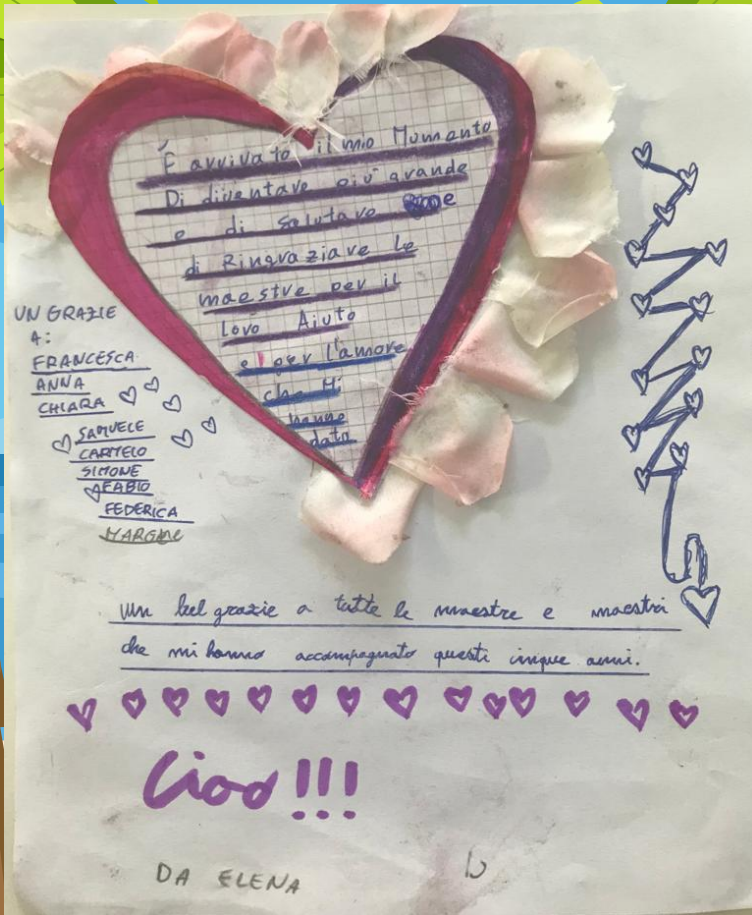 È arrivato il mio Momento
Di diventare più grande
e di salutare e
di Ringraziare le
maestre per il
loro Aiuto
e per l'amore
che Mi
hanno
dato
UN GRAZIE
A:
FRANCESCA
ANNA
CHIARA
SAMUELE
CARMELO
SIMONE
FABIO
FEDERICA
un bel grazie a tutte le maestre e maestri
che mi hanno accompagnato questi cinque anni.
Ciao!!!
DA ELENA